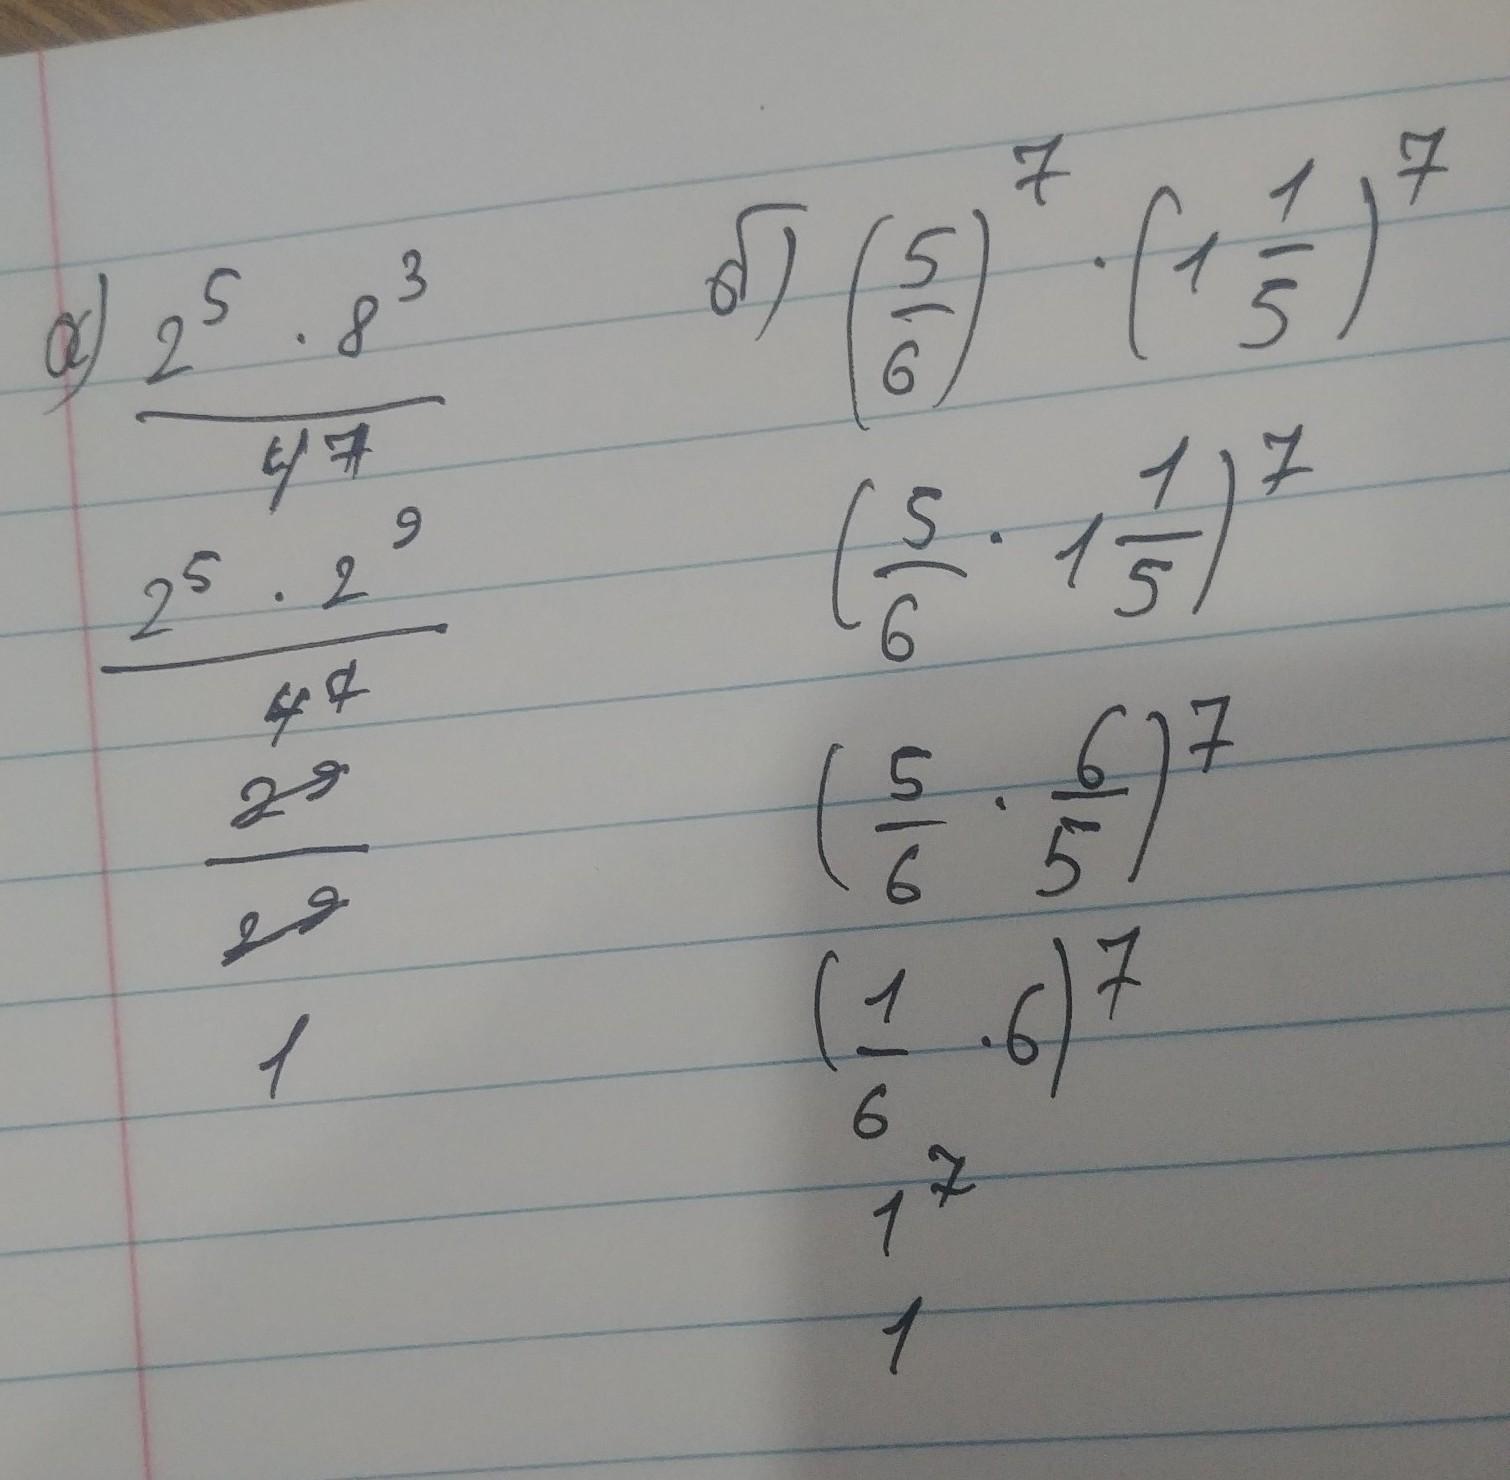 а) 2^5 · 8^3 / 4^7
2^5 · 2^9 / 4^7
2^9 / 2^9
1
б) (5/6)^7 · (1 1/5)^7
(5/6 · 1 1/5)^7
(5/6 · 6/5)^7
(1/6 · 6)^7
1^7
1